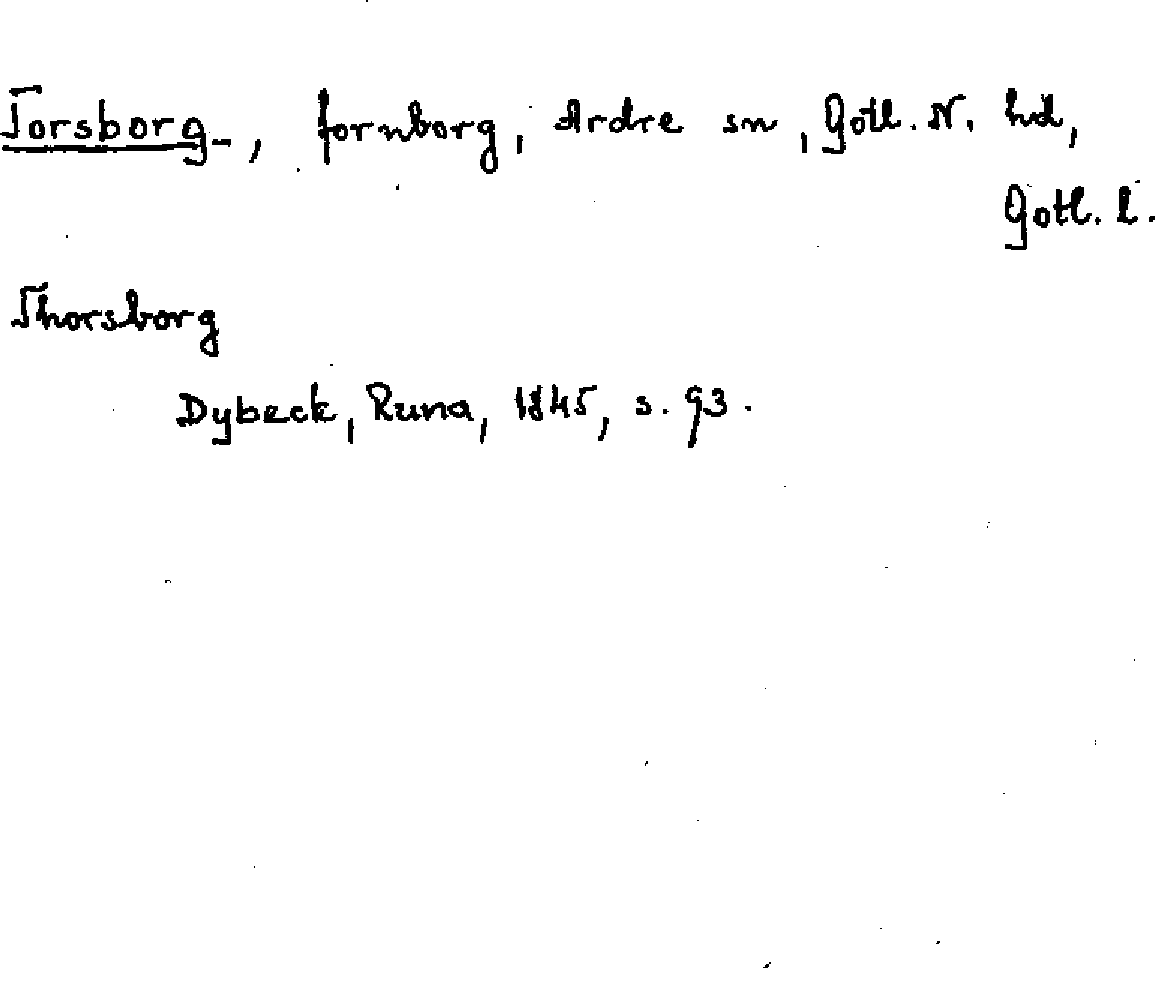 Torsborg, fornborg, Ardre sn, Gotl. N. hd,
Gotl. l.
Thorsborg
Dybeck, Runa, 1845, s. 93.